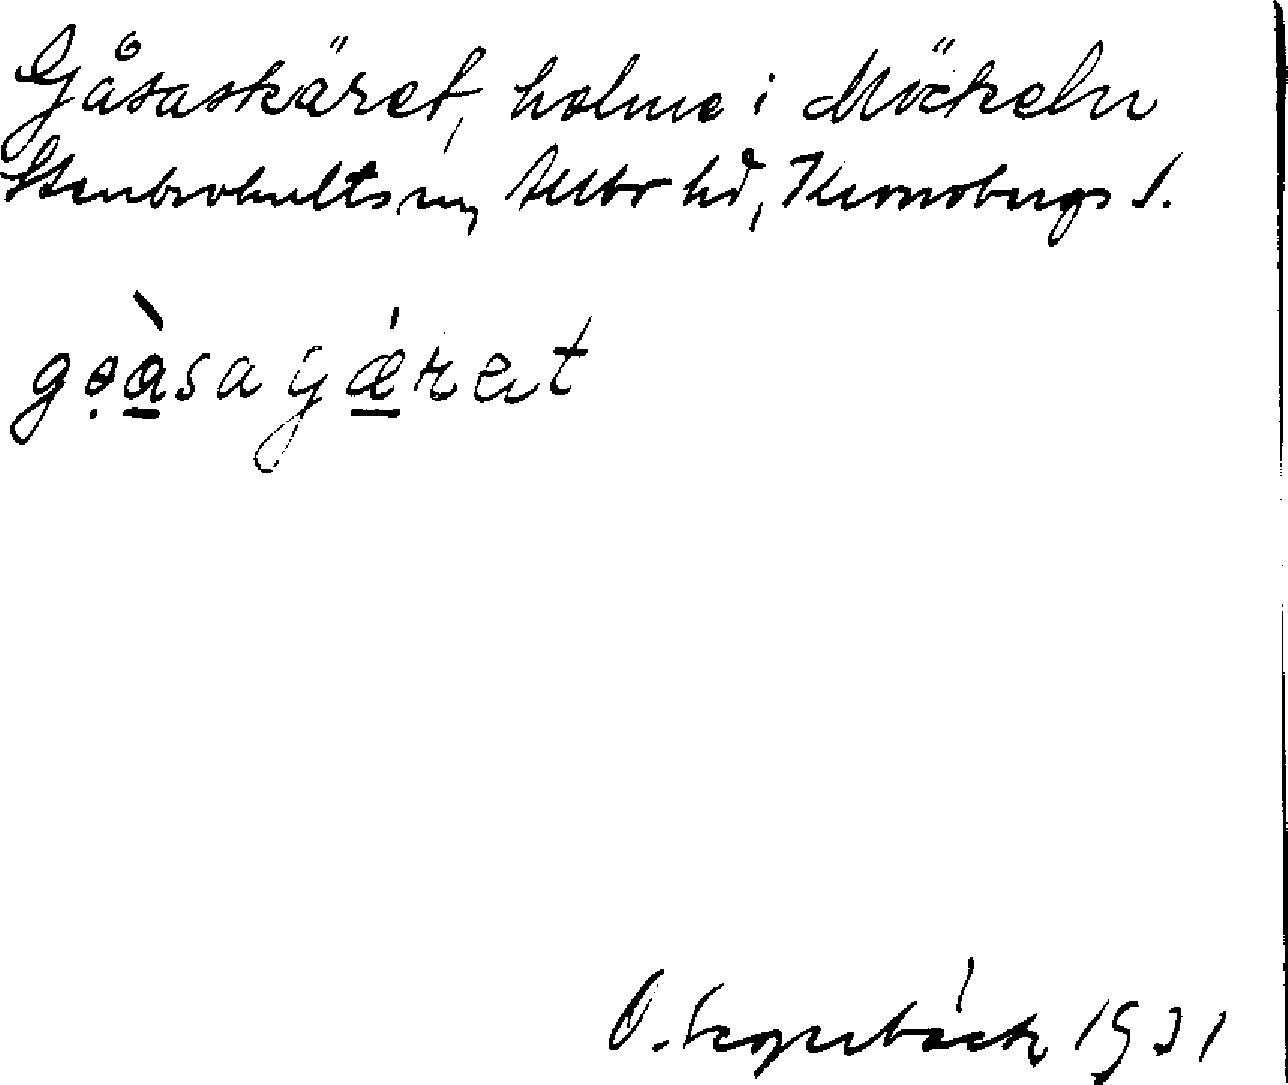 Gåsaskäret, holme i Möckeln
Stenbrohults sn, Allbo hd, Kronobergs l.
gọà̱saɣǽ̱ret
O. 1931